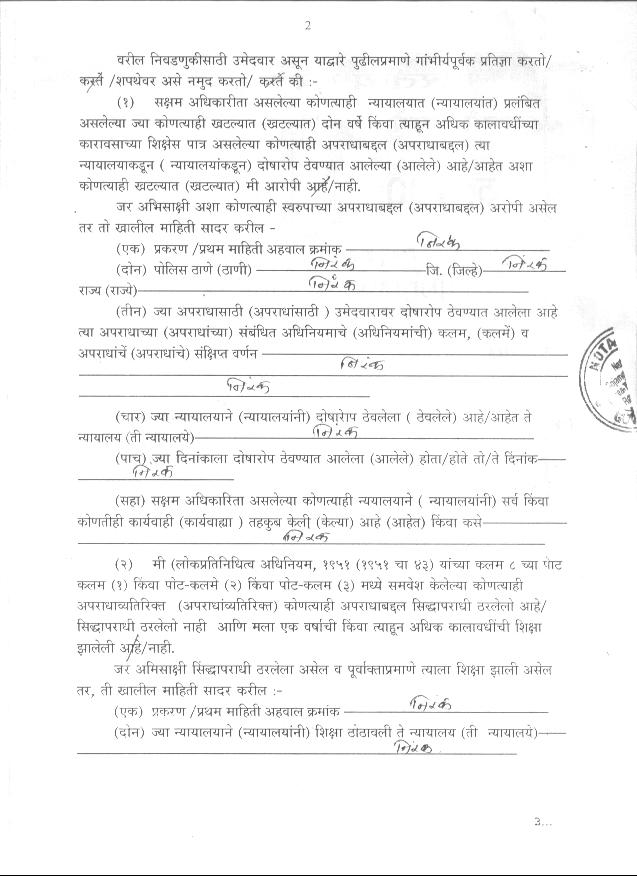 2
वरील निवडणुकीसाठी उमेदवार असून याद्वारे पुढीलप्रमाणे गांभीर्यपूर्वक प्रतिज्ञा करतो/
करते /शपथेवर असे नमुद करतो/ करते की :-
(१) सक्षम अधिकारीता असलेल्या कोणत्याही न्यायालयात (न्यायालयांत) प्रलंबित
असलेल्या ज्या कोणत्याही खटल्यात (खटल्यात) दोन वर्षे किंवा त्याहून अधिक कालावधीच्या
कारावसाच्या शिक्षेस पात्र असलेल्या कोणत्याही अपराधाबद्दल (अपराधाबद्दल) त्या
न्यायालयाकडून ( न्यायालयांकडून) दोषारोप ठेवण्यात आलेल्या (आलेले) आहे/आहेत अशा
कोणत्याही खटल्यात (खटल्यात) मी आरोपी आहे/नाही.
जर अभिसाक्षी अशा कोणत्याही स्वरुपाच्या अपराधाबद्दल (अपराधाबद्दल) अरोपी असेल
तर तो खालील माहिती सादर करील -
(एक) प्रकरण /प्रथम माहिती अहवाल क्रमांक निरंक
(दोन) पोलिस ठाणे (ठाणी) निरंक जि. (जिल्हे) निरंक
राज्य (राज्ये) निरंक
(तीन) ज्या अपराधासाठी (अपराधांसाठी ) उमेदवारावर दोषारोप ठेवण्यात आलेला आहे
त्या अपराधाच्या (अपराधांच्या) संबंधित अधिनियमाचे (अधिनियमांची) कलम, (कलमें) व
अपराधांचें (अपराधांचे) संक्षिप्त वर्णन निरंक
निरंक
(चार) ज्या न्यायालयाने (न्यायालयांनी) दोषारोप ठेवलेला ( ठेवलेले) आहे/आहेत ते
न्यायालय (ती न्यायालये) निरंक
(पाच) ज्या दिनांकाला दोषारोप ठेवण्यात आलेला (आलेले) होता/होते तो/ते दिंनांक
निरंक
(सहा) सक्षम अधिकारिता असलेल्या कोणत्याही न्ययालयाने ( न्यायालयांनी) सर्व किंवा
कोणतीही कार्यवाही (कार्यवाह्या ) तहकुब केली (केल्या) आहे (आहेत) किंवा कसे
निरंक
(२) मी (लोकप्रतिनिधित्व अधिनियम, १९५१ (१९५१ चा ४३) यांच्या कलम ८ च्या पोट
कलम (१) किंवा पोट-कलमे (२) किंवा पोट-कलम (३) मध्ये समवेश केलेल्या कोणत्याही
अपराधाव्यतिरिक्त (अपराधांव्यतिरिक्त) कोणत्याही अपराधाबद्दल सिद्धापराधी ठरलेलो आहे/
सिद्धापराधी ठरलेलो नाही आणि मला एक वर्षाची किंवा त्याहून अधिक कालावधींची शिक्षा
झालेली आहे/नाही.
जर अमिसाक्षी सिंद्धापराधी ठरलेला असेल व पूर्वाक्ताप्रमाणे त्याला शिक्षा झाली असेल
तर, ती खालील माहिती सादर करील :-
(एक) प्रकरण /प्रथम माहिती अहवाल क्रमांक निरंक
(दोन) ज्या न्यायालयाने (न्यायालयांनी) शिक्षा ठोठावली ते न्यायालय (ती न्यायालये)
निरंक
3...
NOTA